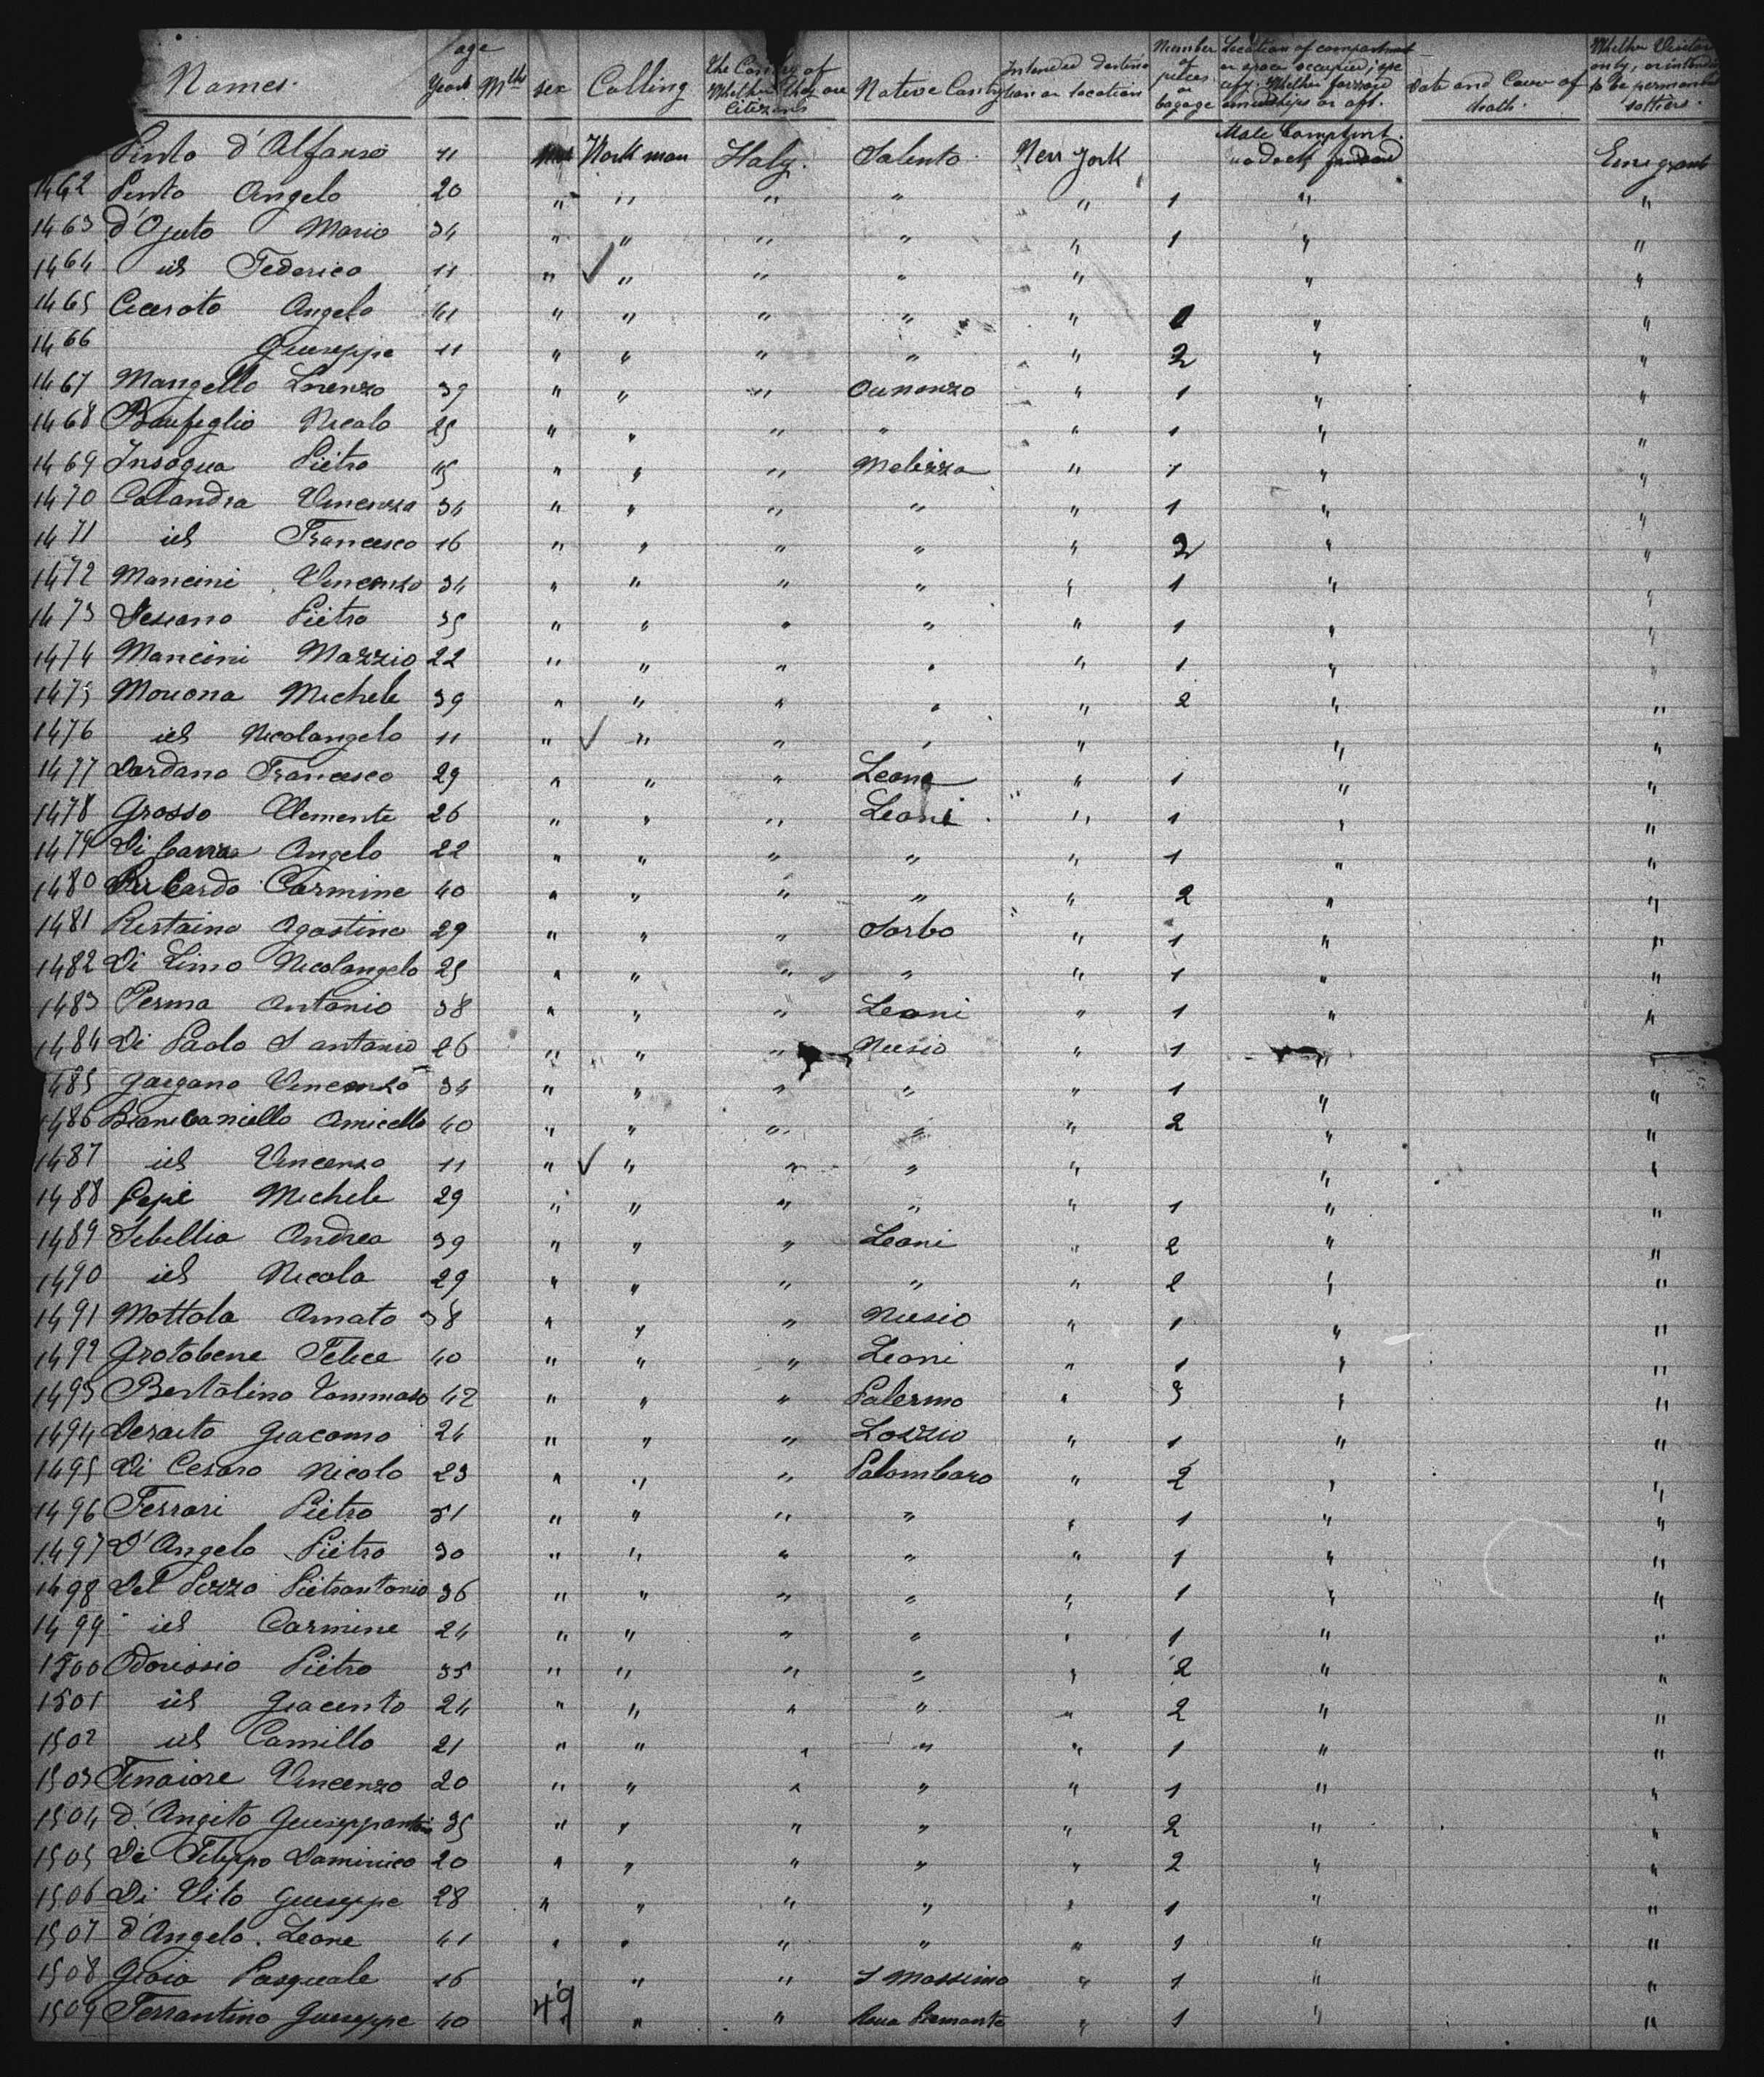 Names. age Years Mths sex Calling The Country of Whether they are Citizens Native Country Intended destination or location Number of pieces of bagage Location of compartment or space occupied; Whether forward amidships or aft. Date and Cause of death. Whether Visitors only, or intended to be permanent settlers.
Pinto d'Alfonso 41 Work man Italy. Salento New York Male Compt Emigrant
1462 Pinto Angelo 20 " " " " " 1 " "
1463 d'Ojuto Mario 34 " " " " " 1 " "
1464 id Federico 11 " ✓ " " " " " "
1465 Cicerato Angelo 41 " " " " " 1 " "
1466 Giuseppe 11 " " " " " 2 " "
1467 Mangello Lorenzo 39 " " " Ounonzo " 1 " "
1468 Nicolo 25 " " " " " 1 " "
1469 Insogua Pietro 45 " " " Molizza " 1 " "
1470 Calandra Vincenza 34 " " " " " 1 " "
1471 id Francesco 16 " " " " " 2 " "
1472 Mancini Vincenzo 34 " " " " " 1 " "
1473 Pietro 35 " " " " " 1 " "
1474 Mancini Mazzio 22 " " " " " 1 " "
1475 Mouona Michele 39 " " " " " 2 " "
1476 id Nicolangelo 11 " ✓ " " " " " "
1477 Dardano Francesco 29 " " " Leone " 1 " "
1478 Grosso Clemente 26 " " " Leoni " 1 " "
1479 Di Angelo 22 " " " " " 1 " "
1480 Carmine 40 " " " " " 2 " "
1481 Restaino Agostino 29 " " " Sorbo " 1 " "
1482 Di Limo Nicolangelo 25 " " " " " 1 " "
1483 Perma Antonio 38 " " " Leoni " 1 " "
1484 Di Paolo S antonio 26 " " " Nusio " 1 " "
1485 Gargano Vincenzo 34 " " " " " 1 " "
1486 Biancaniello Amiello 40 " " " " " 2 " "
1487 id Vincenzo 11 " ✓ " " " " " "
1488 Pepe Michele 29 " " " " " 1 " "
1489 Sibellia Andrea 39 " " " Leoni " 2 " "
1490 id Nicola 29 " " " " " 2 " "
1491 Mottola Amato 38 " " " Nusio " 1 " "
1492 Grotobene Felice 40 " " " Leoni " 1 " "
1493 Bertolino Tommaso 42 " " " Palermo " 3 " "
1494 Deraito Giacomo 24 " " " Lozzio " 1 " "
1495 Di Cesaro Nicolo 23 " " " Palombaro " 2 " "
1496 Ferrari Pietro 51 " " " " " 1 " "
1497 D'Angelo Pietro 30 " " " " " 1 " "
1498 Del Pozzo Pietrantonio 36 " " " " " 1 " "
1499 id Carmine 24 " " " " " 1 " "
1500 Odorissio Pietro 35 " " " " " 2 " "
1501 id Giacinto 24 " " " " " 2 " "
1502 id Camillo 21 " " " " " 1 " "
1503 Tenaiore Vincenzo 20 " " " " " 1 " "
1504 d'Angito 35 " " " " " 2 " "
1505 De Filippo Dominico 20 " " " " " 2 " "
1506 Di Vito Giuseppe 28 " " " " " 1 " "
1507 d'Angelo Leone 41 " " " " " 1 " "
1508 Gioia Pasquale 16 " " " S Massimo " 1 " "
1509 Ferrantino Giuseppe 40 49 " " " 1 " "